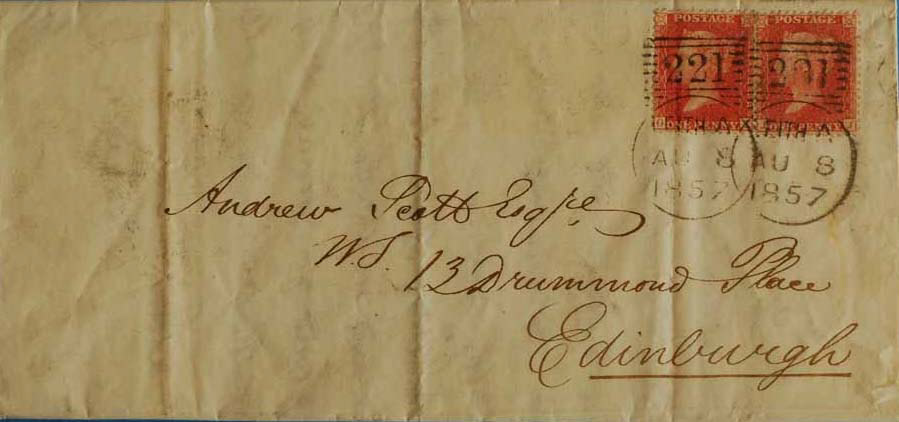 POSTAGE POSTAGE
221 221
ONE PENNY
LEITH A
AU 8 AU 8
1857 1857
Andrew Scott Esqre
W.S. 13 Drummond Place
Edinburgh